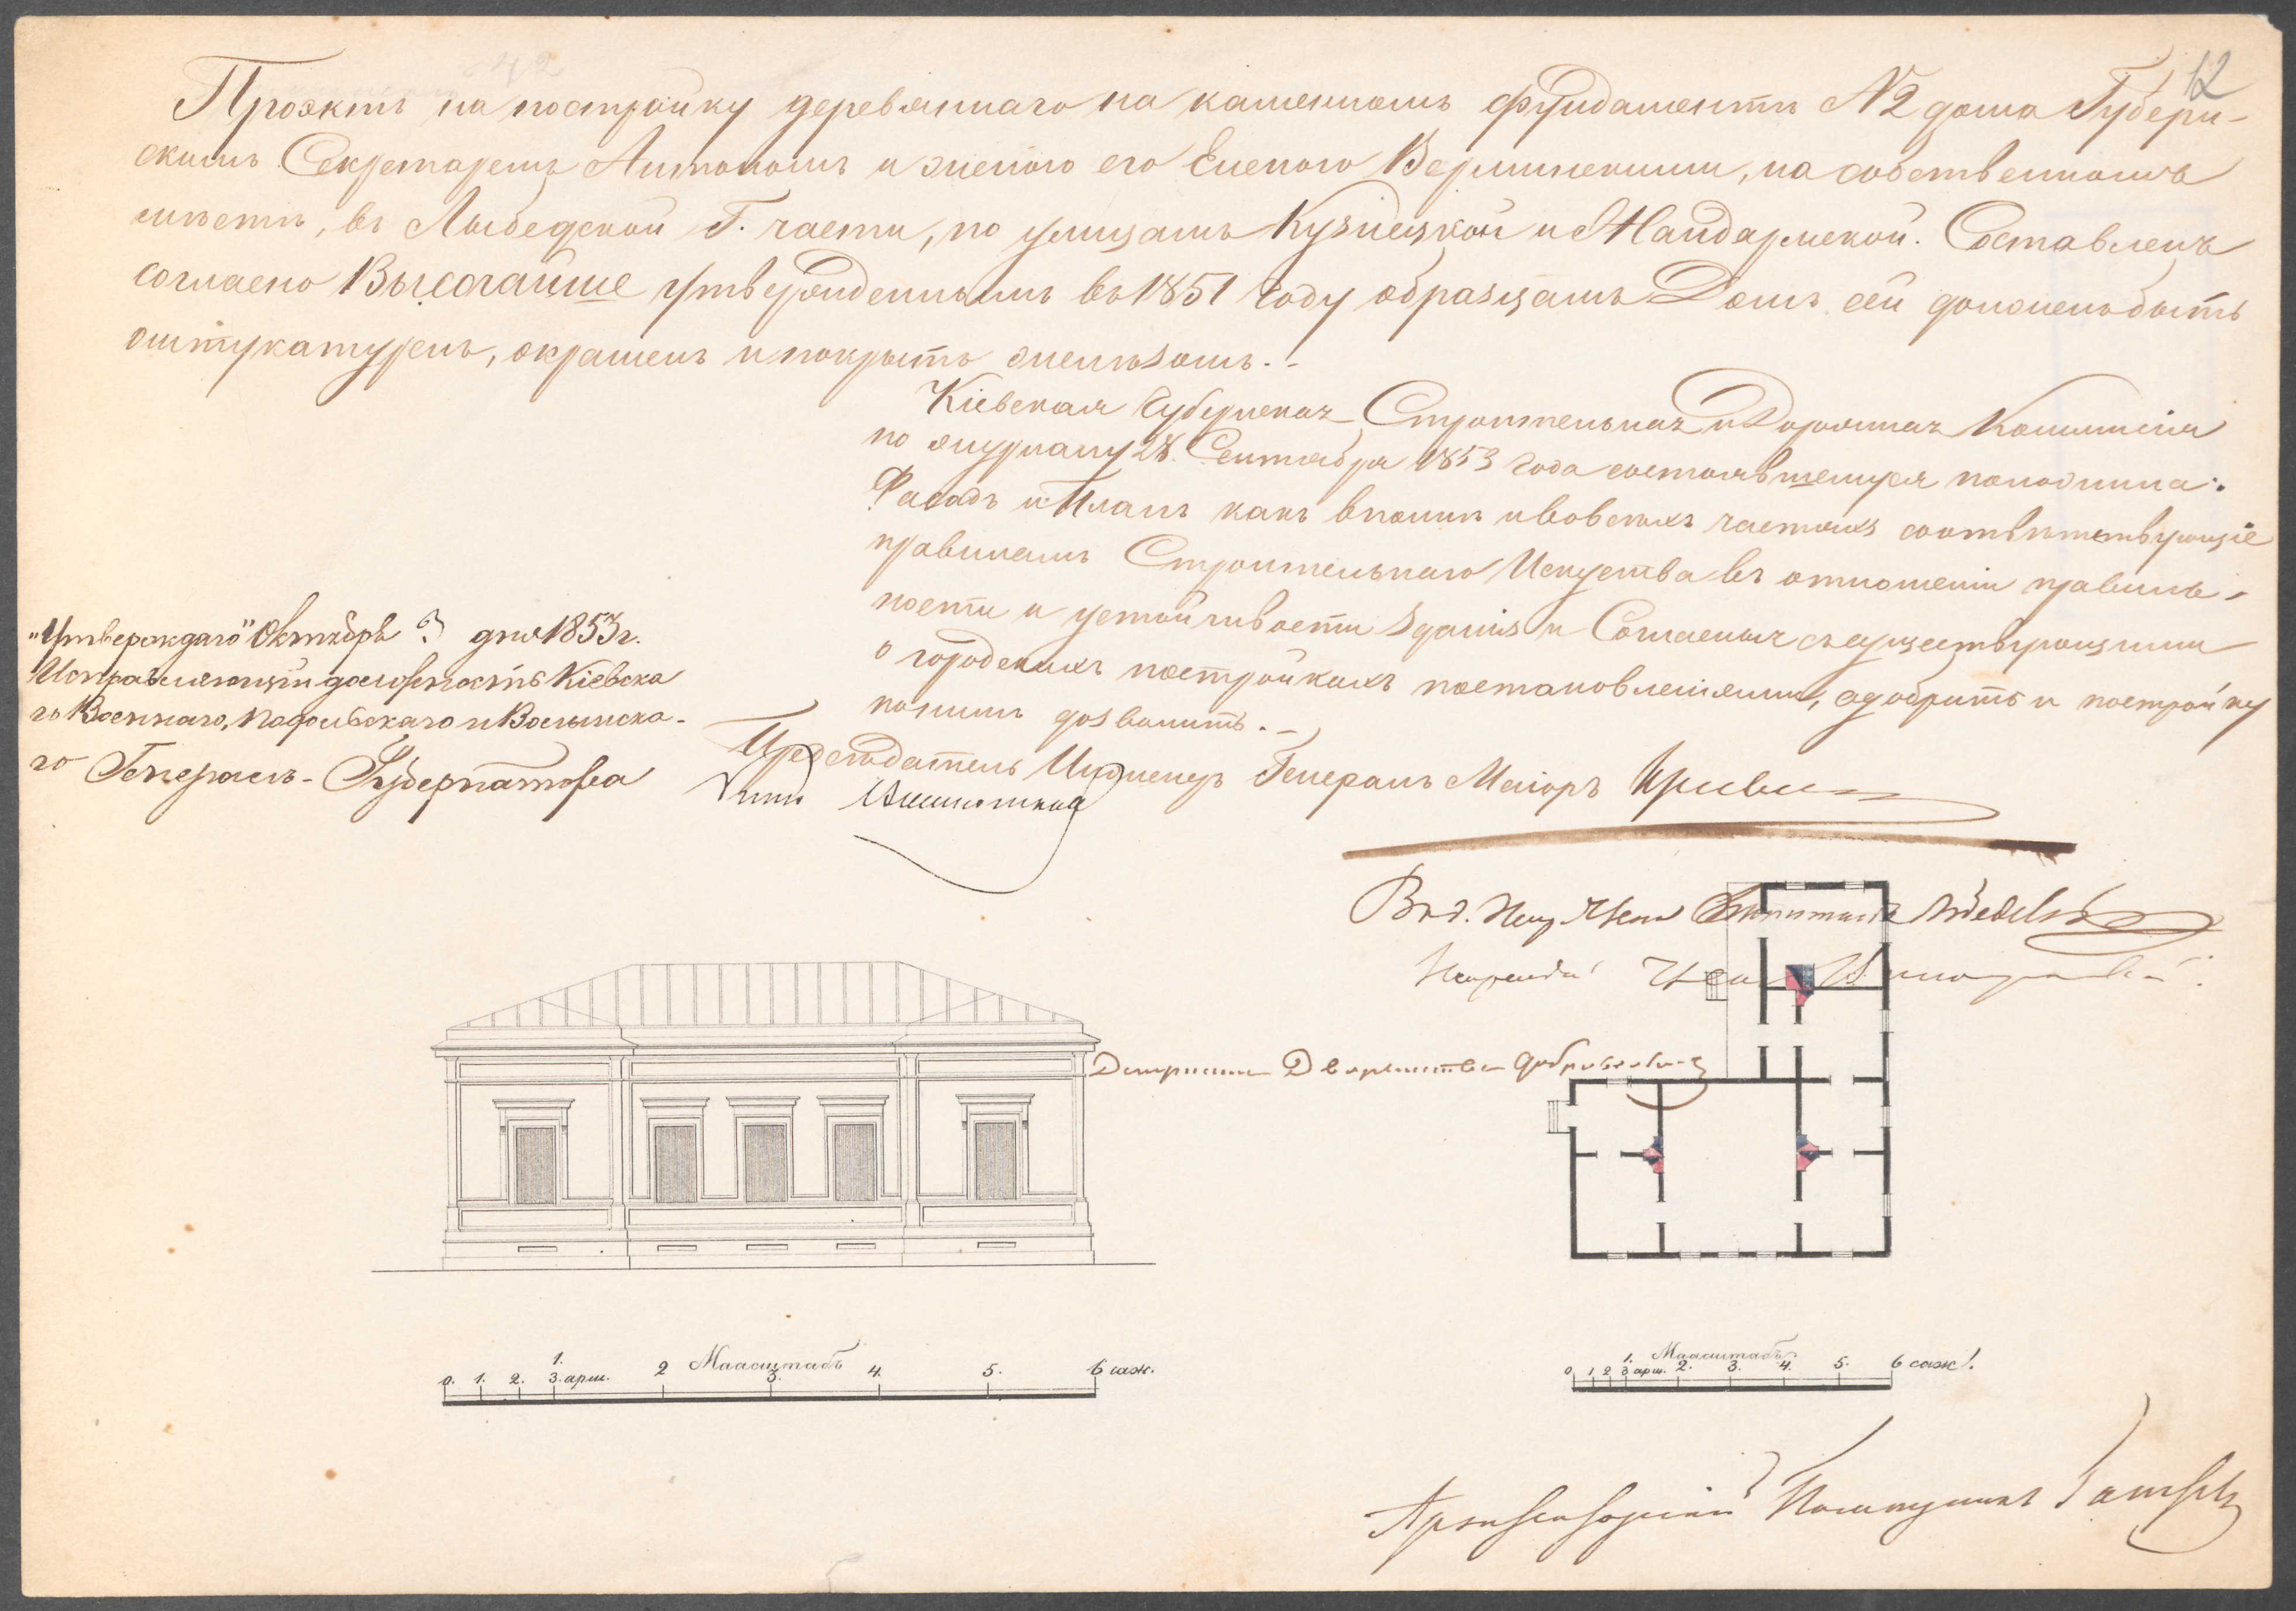 12
Проэктъ на постройку деревяннаго на каменномъ фундаментѣ №2 дома Губерн-
скимъ Секретаремъ Антономъ и женою его Еленою Вержинскими, на собственномъ
мѣстѣ, въ Лыбедской Г. части, по улицамъ Кузнецкой и Жандармской. Составленъ
согласно Высочайше утвержденнымъ въ 1851 году образцамъ Домъ сей долженъ быть
оштукатуренъ, окрашенъ и покрытъ желѣзомъ.
Кіевская Губернская Строительная и Дорожная Коммисія
по журналу 28. Сентября 1853 года состоявшемуся положила:
Фасадъ и Планъ какъ вполнѣ и во всѣхъ частяхъ соотвѣтствующіе
правиламъ Строительнаго Искуства въ отношеніи правиль-
ности и устойчивости зданія и Согласныя съ существующими
о городскихъ постройкахъ постановленіями, одобрить и постройку
полимъ дозволить.
Предсѣдатель Инженеръ Генералъ Маіоръ
"Утверждаю" Октября 3 дня 1853 г.
Исправляющій должность Кіевска
го Военнаго, Подольскаго и Волынска-
го Генералъ-Губернатора
Депутатъ Дворянства
Маасштабъ
0. 1. 2. 3. арш. 1. 2 3. 4. 5. 6 саж.
Маасштабъ
0 1 2 3 арш. 1. 2. 3. 4. 5. 6 саж.
Архитекторскій Помощникъ